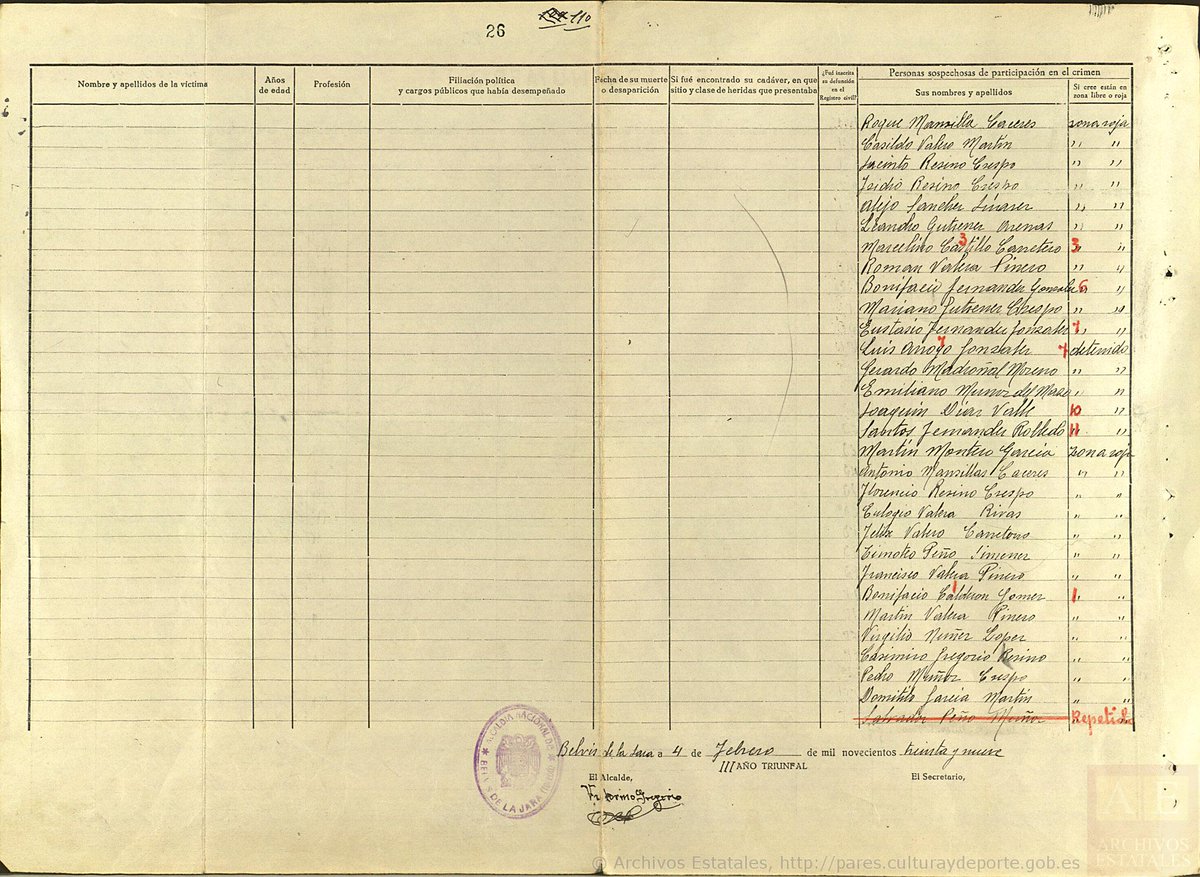 26
110
Nombre y apellidos de la víctima
Años de edad
Profesión
Filiación política y cargos públicos que había desempeñado
Fecha de su muerte o desaparición
Si fué encontrado su cadáver, en que sitio y clase de heridas que presentaba
¿Fué inscrita su defunción en el Registro civil?
Personas sospechosas de participación en el crimen
Sus nombres y apellidos
Si cree están en zona libre o roja
Roque Mansilla Caceres zona roja
Casildo Valero Martin " "
Jacinto Resino Crespo " "
Isidro Resino Crespo " "
Alejo Sanchez Linares " "
Leandro Gutierrez Arenas " "
Marcelino Castillo Carretero 3 " "
Roman Valera Pinero " "
Bonifacio Fernandez Gonzalez 6 " "
Mariano Gutierrez Crespo " "
Eustasio Fernandez Gonzalez 7 " "
Luis Arroyo Gonzalez 7 detenido
Gerardo Madroñal Moreno " "
Emiliano Muñoz del Mazo " "
Joaquin Diaz Valle 10 "
Santos Fernandez Robledo 11 "
Martin Montero Garcia zona roja
Antonio Mansillas Caceres " "
Florencio Resino Crespo " "
Eulogio Valera Rivas " "
Feliz Valero Carretero " "
Timoteo Peño Jimenez " "
Francisco Valera Pinero " "
Bonifacio Calderon Gomez 1 " "
Martin Valera Pinero " "
Virgilio Nuñez Lopez " "
Casimiro Gregorio Resino " "
Pedro Muñoz Crespo " "
Domitilo Garcia Martin " "
Salvador Peño Muñoz Repetido
Belvis de la Jara a 4 de Febrero de mil novecientos treinta y nueve
III AÑO TRIUNFAL
El Alcalde,
El Secretario,
Victorino Gregorio
ALCALDIA NACIONAL DE BELVIS DE LA JARA (Toledo)
ARCHIVOS ESTATALES
© Archivos Estatales, http://pares.culturaydeporte.gob.es